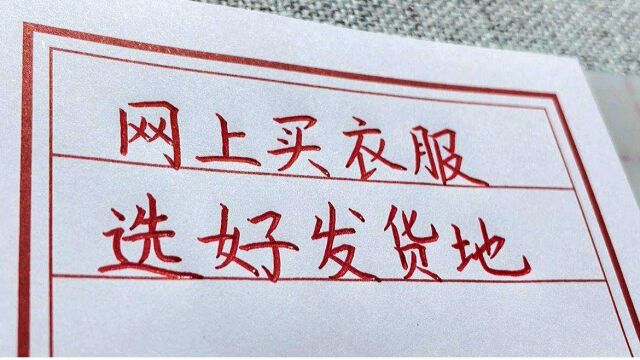 网上买衣服
选好发货地